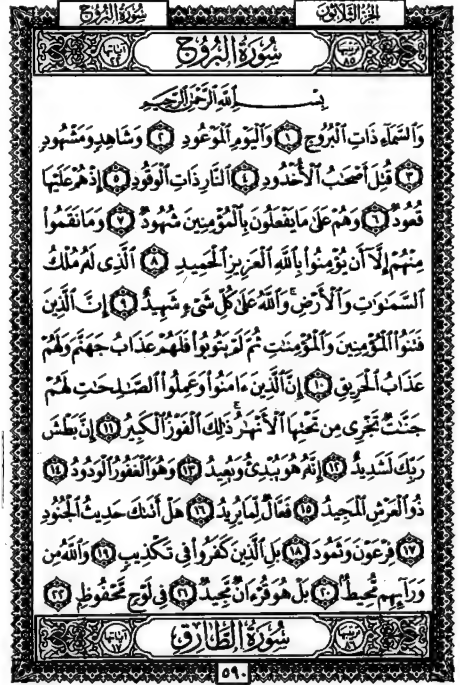 الجزء الثلاثون سورة البروج
ترتيبها ٨٥ سورة البروج آياتها ٢٢
بسم الله الرحمن الرحيم
وَالسَّمَاءِ ذَاتِ الْبُرُوجِ ١ وَالْيَوْمِ الْمَوْعُودِ ٢ وَشَاهِدٍ وَمَشْهُودٍ
٣ قُتِلَ أَصْحَٰبُ الْأُخْدُودِ ٤ النَّارِ ذَاتِ الْوَقُودِ ٥ إِذْ هُمْ عَلَيْهَا
قُعُودٌ ٦ وَهُمْ عَلَىٰ مَا يَفْعَلُونَ بِالْمُؤْمِنِينَ شُهُودٌ ٧ وَمَا نَقَمُوا
مِنْهُمْ إِلَّا أَن يُؤْمِنُوا بِاللَّهِ الْعَزِيزِ الْحَمِيدِ ٨ الَّذِي لَهُ مُلْكُ
السَّمَٰوَٰتِ وَالْأَرْضِ ۚ وَاللَّهُ عَلَىٰ كُلِّ شَيْءٍ شَهِيدٌ ٩ إِنَّ الَّذِينَ
فَتَنُوا الْمُؤْمِنِينَ وَالْمُؤْمِنَٰتِ ثُمَّ لَمْ يَتُوبُوا فَلَهُمْ عَذَابُ جَهَنَّمَ وَلَهُمْ
عَذَابُ الْحَرِيقِ ١٠ إِنَّ الَّذِينَ ءَامَنُوا وَعَمِلُوا الصَّٰلِحَٰتِ لَهُمْ
جَنَّٰتٌ تَجْرِي مِن تَحْتِهَا الْأَنْهَٰرُ ۚ ذَٰلِكَ الْفَوْزُ الْكَبِيرُ ١١ إِنَّ بَطْشَ
رَبِّكَ لَشَدِيدٌ ١٢ إِنَّهُ هُوَ يُبْدِئُ وَيُعِيدُ ١٣ وَهُوَ الْغَفُورُ الْوَدُودُ ١٤
ذُو الْعَرْشِ الْمَجِيدُ ١٥ فَعَّالٌ لِّمَا يُرِيدُ ١٦ هَلْ أَتَىٰكَ حَدِيثُ الْجُنُودِ
١٧ فِرْعَوْنَ وَثَمُودَ ١٨ بَلِ الَّذِينَ كَفَرُوا فِي تَكْذِيبٍ ١٩ وَاللَّهُ مِن
وَرَآئِهِم مُّحِيطٌ ٢٠ بَلْ هُوَ قُرْءَانٌ مَّجِيدٌ ٢١ فِي لَوْحٍ مَّحْفُوظٍ ٢٢
ترتيبها ٨٦ سورة الطارق آياتها ١٧
٥٩٠